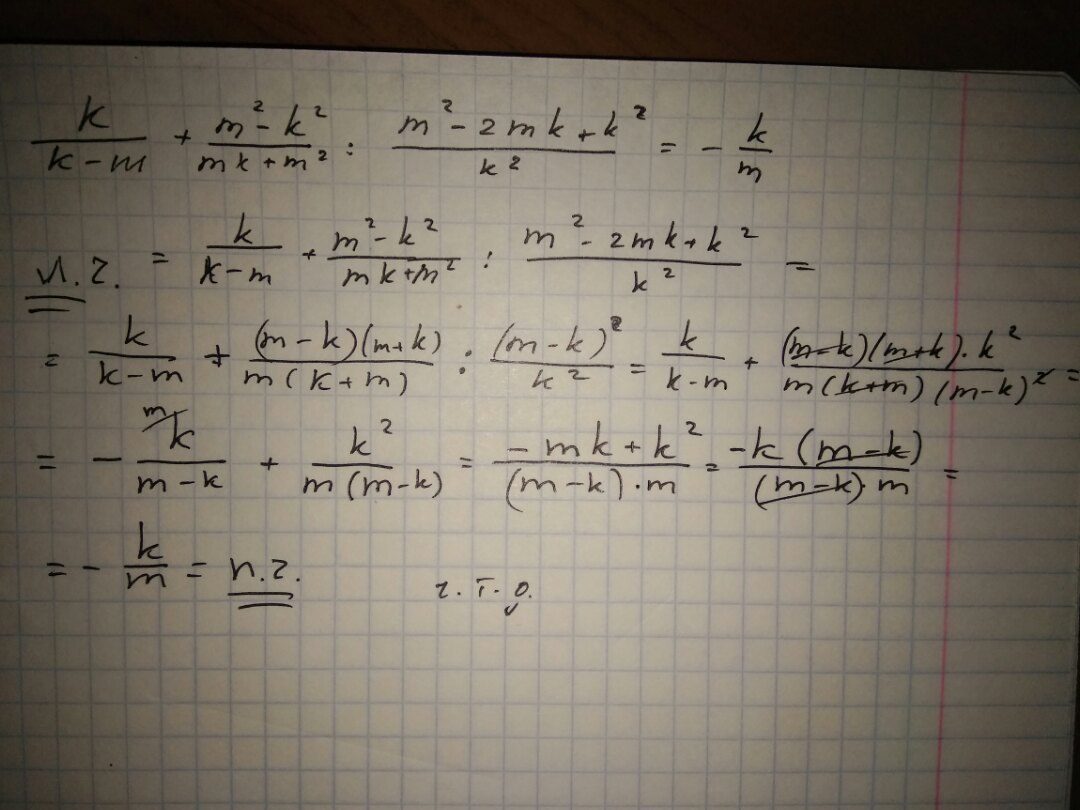 k/(k-m) + (m²-k²)/(mk+m²) : (m²-2mk+k²)/k² = -k/m
л.ч. = k/(k-m) + (m²-k²)/(mk+m²) : (m²-2mk+k²)/k² =
= k/(k-m) + (m-k)(m+k)/(m(k+m)) : (m-k)²/k² = k/(k-m) + (m-k)(m+k)·k²/(m(k+m)(m-k)²) =
= - k^{m/}/(m-k) + k²/(m(m-k)) = (-mk+k²)/((m-k)·m) = -k(m-k)/((m-k)m) =
= - k/m = п.ч. ч.т.д.